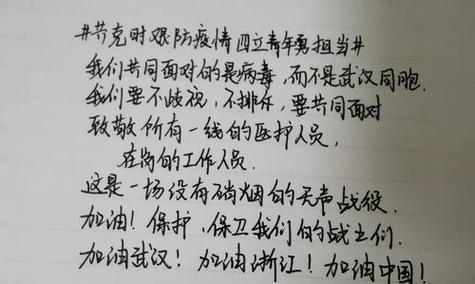 #共克时艰防疫情 四立青年勇担当#
我们共同面对的是病毒,而不是武汉同胞.
我们要不歧视,不排斥,要共同面对
致敬所有一线的医护人员,
在岗的工作人员.
这是一场没有硝烟的无声战役.
加油!保护,保卫我们的战士们.
加油武汉!加油浙江!加油中国!